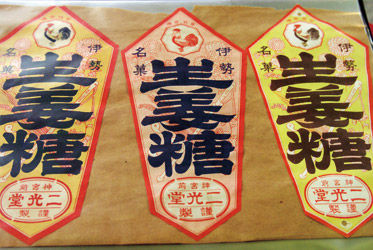 伊勢
名菓
生姜糖
神宮前
二光堂
謹製
伊勢
名菓
生姜糖
神宮前
二光堂
謹製
伊勢
名菓
生姜糖
神宮前
二光堂
謹製